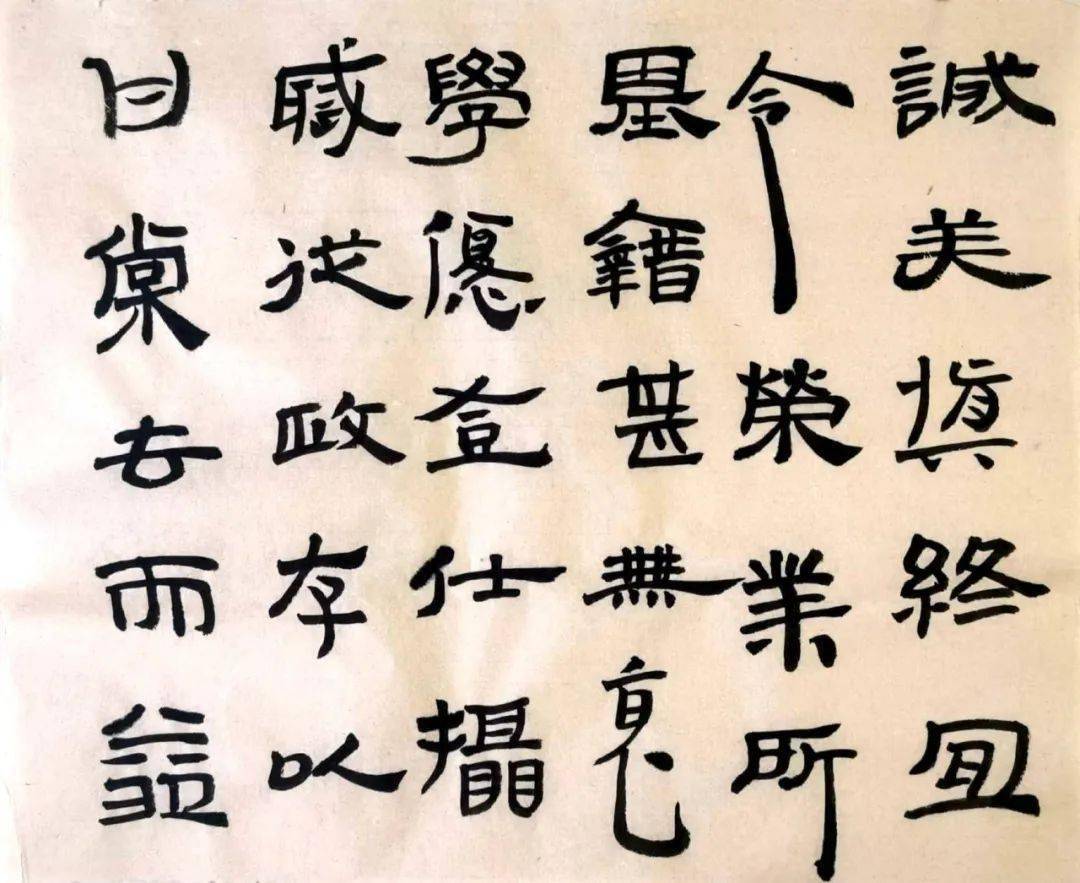 誠美慎終宜
令榮業所
基籍甚無竟
學優登仕攝
職從政存以
甘棠去而益